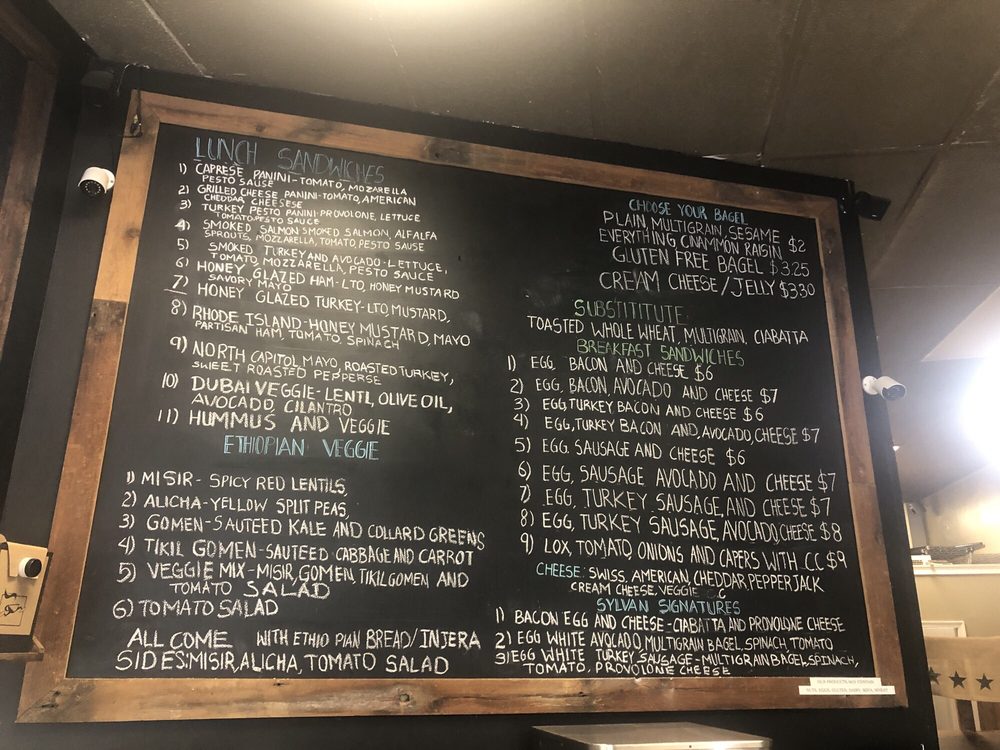 LUNCH SANDWICHES
1) CAPRESE PANINI-TOMATO, MOZARELLA
PESTO SAUSE
2) GRILLED CHEESE PANINI-TOMATO, AMERICAN
CHEDDAR CHEESESE
3) TURKEY PESTO PANINI-PROVOLONE, LETTUCE
TOMATO, PESTO SAUCE
4) SMOKED SALMON-SMOKED SALMON, ALFALFA
SPROUTS, MOZZARELLA, TOMATO, PESTO SAUSE
5) SMOKED TURKEY AND AVOCADO-LETTUCE,
TOMATO, MOZZARELLA, PESTO SAUCE
6) HONEY GLAZED HAM-LTO, HONEY MUSTARD
SAVORY MAYO
7) HONEY GLAZED TURKEY-LTO, MUSTARD,
8) RHODE ISLAND-HONEY MUSTARD, MAYO
PARTISAN HAM, TOMATO, SPINACH
9) NORTH CAPITOL MAYO, ROASTED TURKEY,
SWEET ROASTED PEPPERSE
10) DUBAI VEGGIE-LENTL, OLIVE OIL,
AVOCADO, CILANTRO
11) HUMMUS AND VEGGIE
ETHIOPIAN VEGGIE
1) MISIR- SPICY RED LENTILS,
2) ALICHA-YELLOW SPLIT PEAS,
3) GOMEN-SAUTEED KALE AND COLLARD GREENS
4) TIKIL GOMEN-SAUTEED CABBAGE AND CARROT
5) VEGGIE MIX-MISIR, GOMEN, TIKIL GOMEN, AND
TOMATO SALAD
6) TOMATO SALAD
ALL COME WITH ETHIO PIAN BREAD/INJERA
SIDES:MISIR, ALICHA, TOMATO SALAD
CHOOSE YOUR BAGEL
PLAIN, MULTIGRAIN, SESAME
EVERYTHING, CINAMMON RAISIN $2
GLUTEN FREE BAGEL $3.25
CREAM CHEESE/JELLY $3.30
SUBSTITITUTE
TOASTED WHOLE WHEAT, MULTIGRAIN, CIABATTA
BREAKFAST SANDWICHES
1) EGG, BACON AND CHEESE $6
2) EGG, BACON, AVOCADO AND CHEESE $7
3) EGG, TURKEY BACON AND CHEESE $6
4) EGG, TURKEY BACON AND, AVOCADO, CHEESE $7
5) EGG. SAUSAGE AND CHEESE $6
6) EGG, SAUSAGE, AVOCADO AND CHEESE $7
7) EGG, TURKEY SAUSAGE, AND CHEESE $7
8) EGG, TURKEY SAUSAGE, AVOCADO, CHEESE $8
9) LOX, TOMATO, ONIONS AND CAPERS WITH CC $9
CHEESE: SWISS, AMERICAN, CHEDDAR, PEPPER JACK
CREAM CHEESE, VEGGIE
SYLVAN SIGNATURES
1) BACON EGG AND CHEESE-CIABATTA AND PROVOLONE CHEESE
2) EGG WHITE AVOCADO, MULTIGRAIN BAGEL, SPINACH, TOMATO
3) EGG WHITE TURKEY SAUSAGE-MULTIGRAIN BAGEL, SPINACH,
TOMATO, PROVOLONE CHEESE